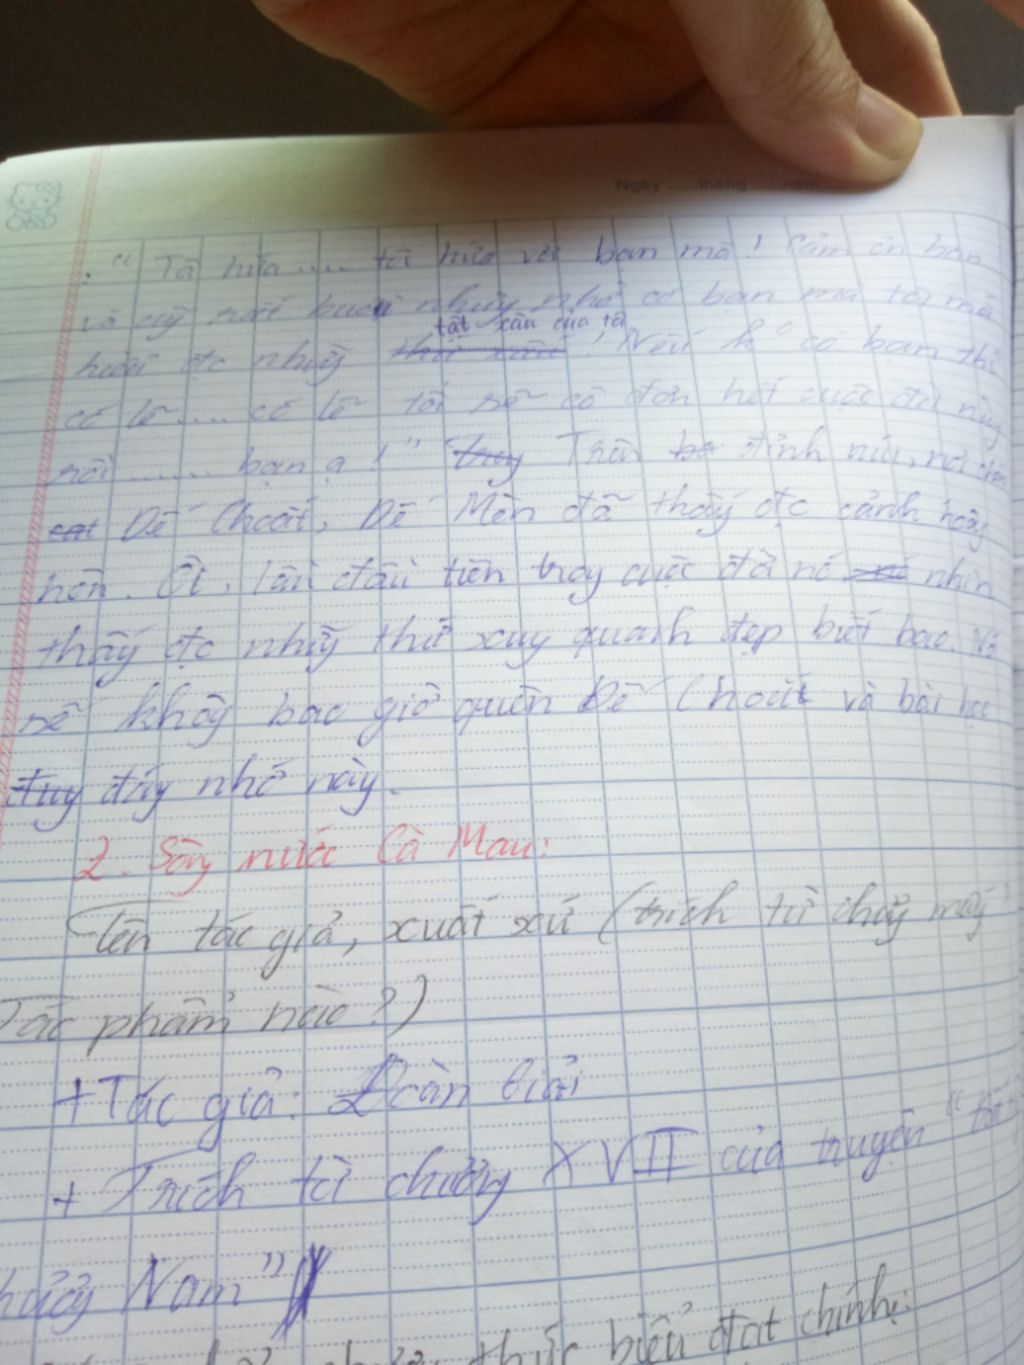 Ngày ...... tháng ...... năm
: " Tớ hứa .... tớ hứa với bạn mà! Cảm ơn bạn
và cũg rất buồn nhưg nhờ có bạn mà tớ mới
tật xấu của tớ
hiểu đc nhữg thứ xấu ! Nếu k° có bạn thì
có lẽ .... có lẽ tớ sẽ cô đơn hết cuộc đời này
rồi ...... bạn ạ ! " Trên đỉnh núi, nơi
Dế Choắt, Dế Mèn đã thấy đc cảnh hoàg
hôn. Ôi, lần đầu tiên trog cuộc đời nó nhìn
thấy đc nhữg thứ xug quanh đẹp biết bao. Nó
sẽ khôg bao giờ quên Dế Choắt và bài học
đág nhớ này.
2. Sôg nước Cà Mau:
Tên tác giả, xuất xứ (trích từ chươg mấy
Tác phẩm nào?)
+ Tác giả: Đoàn Giỏi
+ Trích từ chươg XVIII của truyện " Đất
Nam "
thức biểu đạt chính: